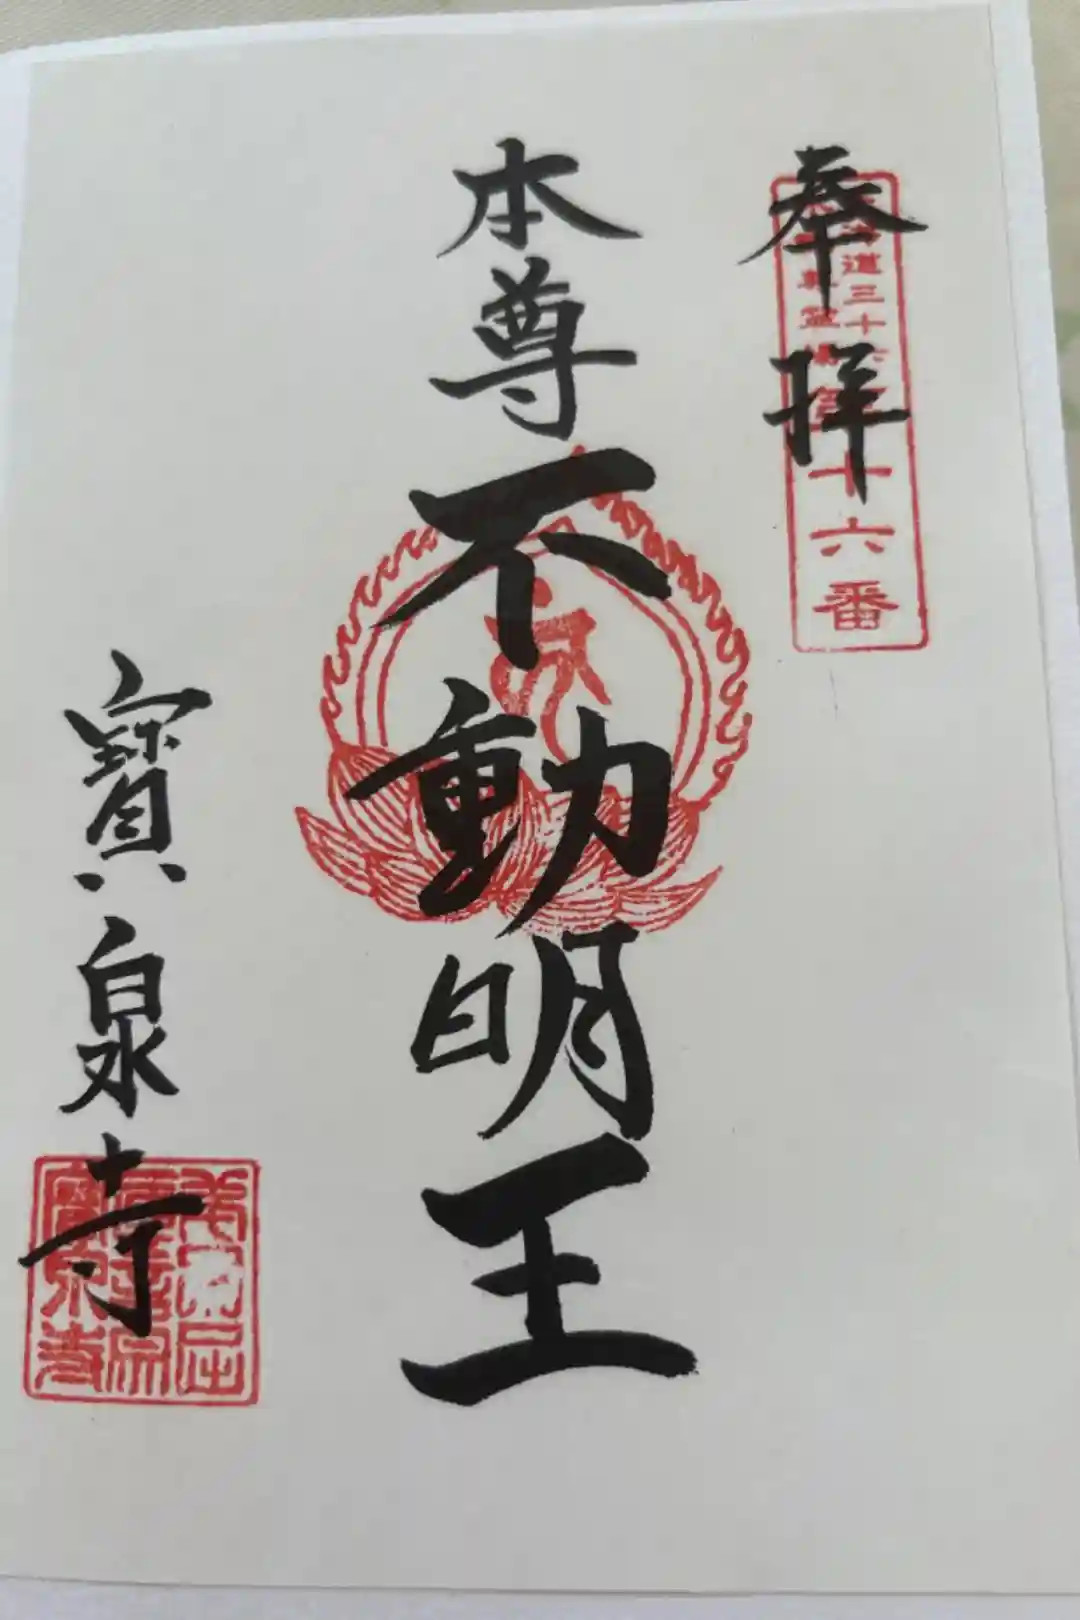 奉拝
道三十六
十六番
本尊
不動明王
寶泉寺